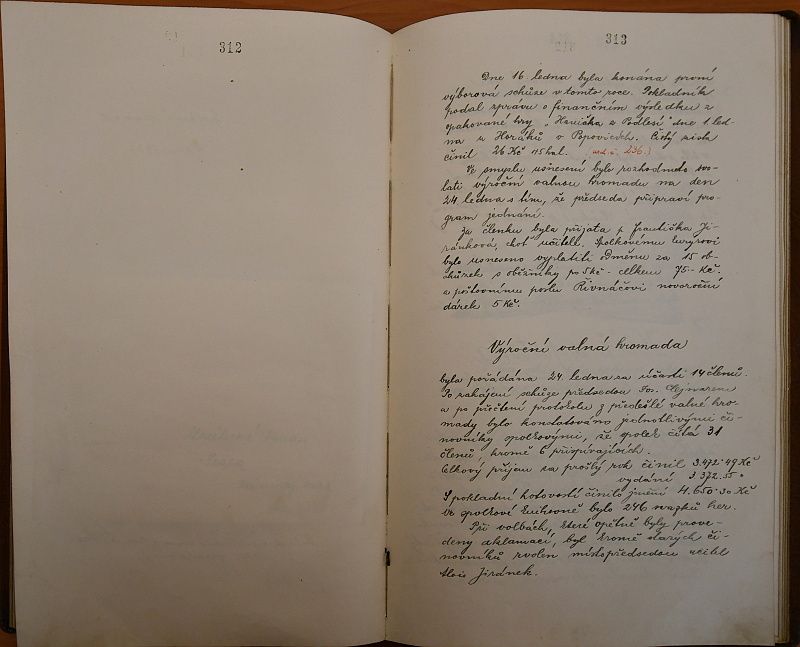 312
313
Dne 16. ledna byla konána první
výborová schůze v tomto roce. Pokladník
podal zprávu o finančním výsledku z
opakované hry „Hanička z Podlesí" dne 1. led-
na u Horáků v Popovicích. Čistý zisk
činil 26 Kč 45 hal. 236.
Ve smyslu usnesení bylo rozhodnuto svo-
lati výroční valnou hromadu na den
24. ledna s tím, že předseda připraví pro-
gram jednání.
Za členku byla přijata p. Františka Ji-
ránková, choť učitele. Spolkovému
bylo usneseno vyplatiti odměnu za 15 ob-
chůzek s oběžníky po 5 Kč - celkem 75.- Kč.
a poštovnímu poslu Řivnáčovi novoroční
dárek 5 Kč.
Výroční valná hromada
byla pořádána 24. ledna za účasti 14 členů.
Po zahájení schůze předsedou Jos.
a po přečtení protokolu z předešlé valné hro-
mady bylo konstatováno jednotlivými či-
novníky spolkovými, že spolek čítá 31
členů, kromě 6 přispívajících.
Celkový příjem za prošlý rok činil 3.472·49 Kč
vydání 3.372.55 "
S pokladní hotovostí činilo jmění 4.650·30 Kč
Ve spolkové knihovně bylo 246 svazků her.
Při volbách, které opětně byly prove-
deny aklamací, byl kromě starých či-
novníků zvolen místopředsedou učitel
Alois Jiránek.